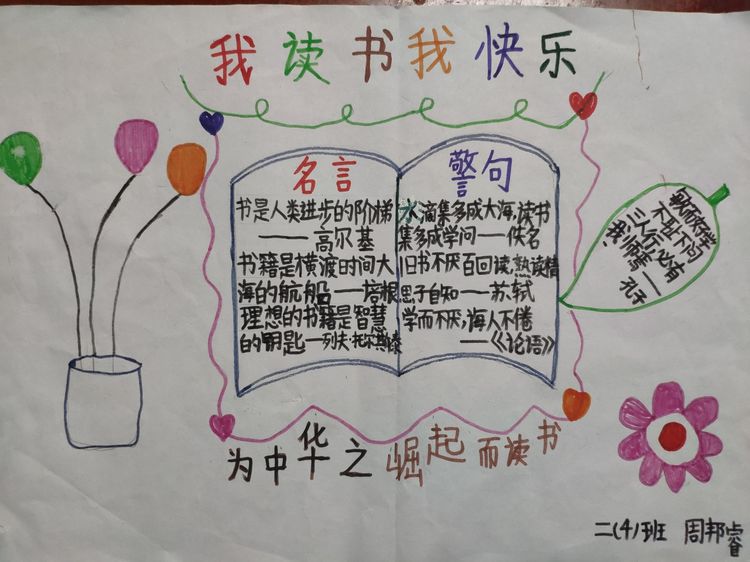 我读书我快乐
名言
书是人类进步的阶梯
——高尔基
书籍是横渡时间大
海的航船——培根
理想的书籍是智慧
的钥匙—列夫·托尔斯泰
警句
水滴集多成大海,读书
集多成学问——佚名
旧书不厌百回读,熟读情
思子自知——苏轼
学而不厌,诲人不倦
——《论语》
敏而好学
不耻下问
三人行,必有
我师焉——
孔子
为中华之崛起而读书
二(4)班 周邦睿